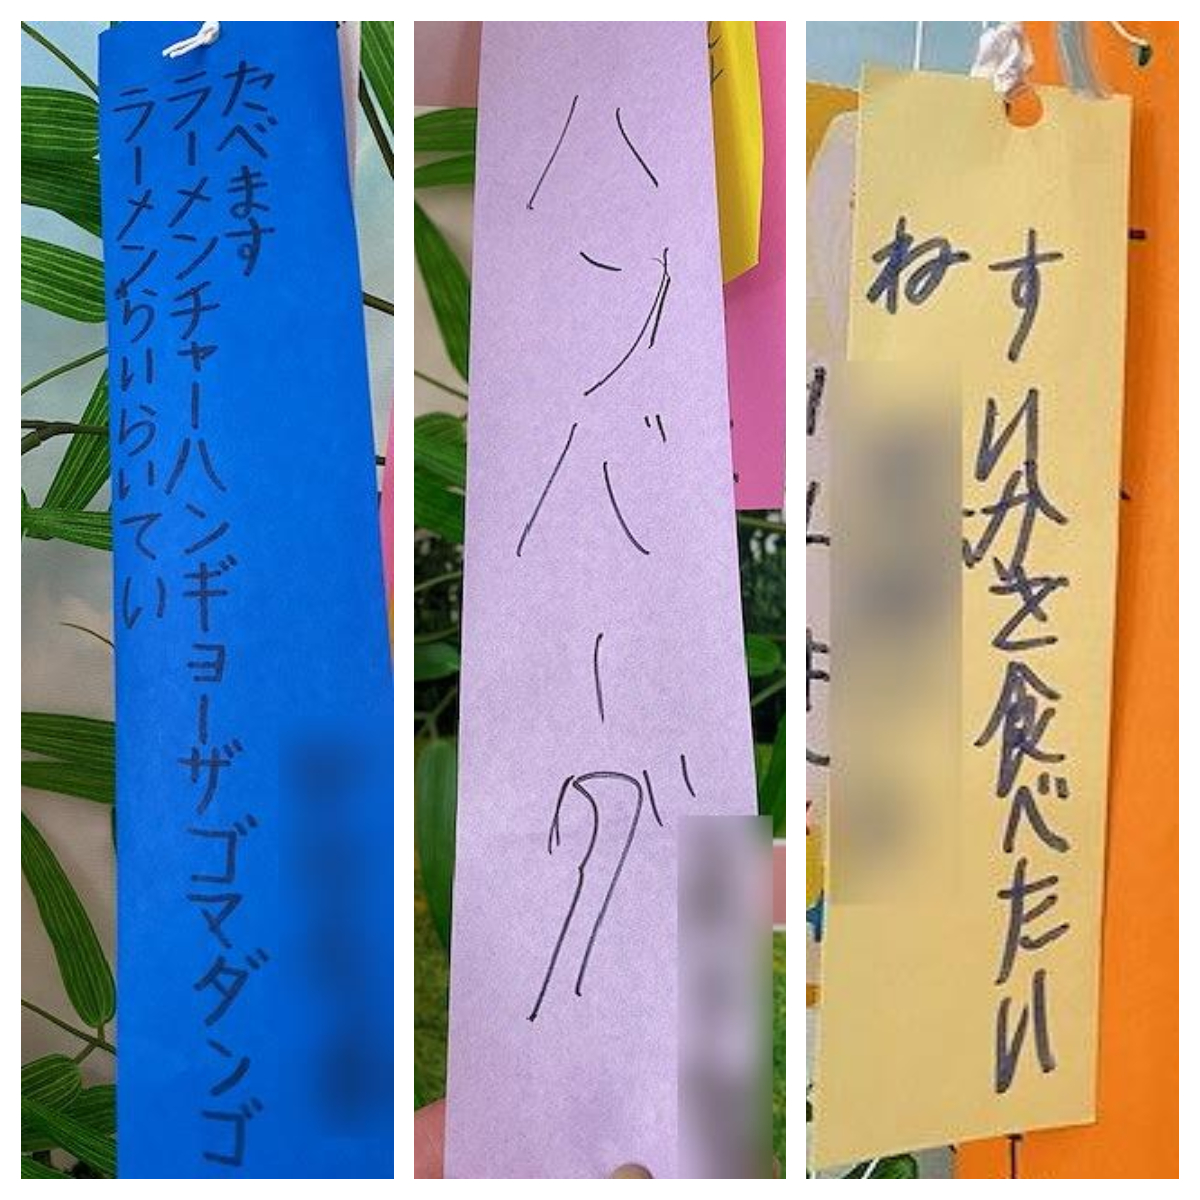 ラーメンらいらいてい
ラーメンチャーハンギョーザゴマダンゴ
たべます
ハンバーグ
すいかを食べたい
ね